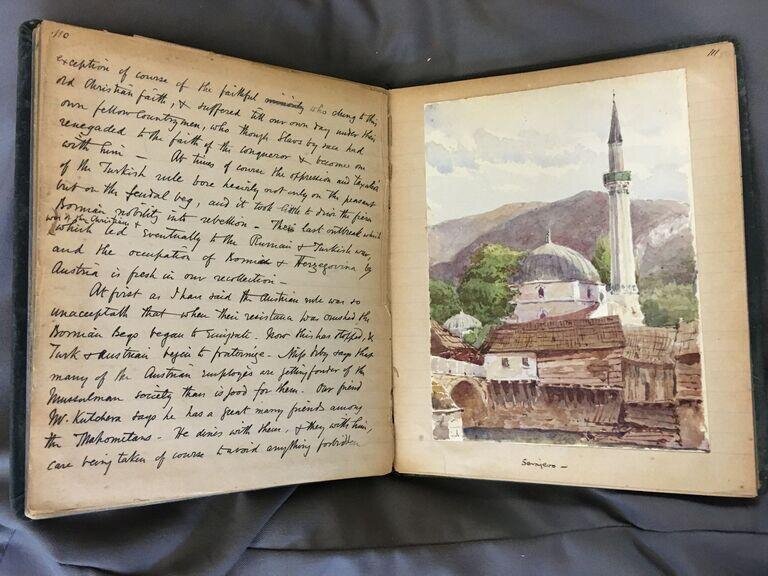 110
exception of course of the faithful minority who clung to their
old Christian faith, & suffered till our own day under their
own fellow Countrymen, who though Slavs by race had
renegaded to the faith of the conqueror & become one
with him — At times of course the oppression and taxation
of the Turkish rule bore heavily not only on the peasant
but on the feudal beg, and it took little to drive the fierce
Bosnian nobility into rebellion — Their last outbreak which
was of the Christians &
which led Eventually to the Russian & Turkish war,
and the occupation of Bosnia & Herzegovina by
Austria is fresh in our recollection —
At first as I have said the Austrian rule was so
unacceptable that when their resistance was crushed the
Bosnian Begs began to Emigrate. Now this has stopped, &
Turk & Austrian begin to fraternise. Miss Irby says that
many of the Austrian Employés are getting fonder of the
Mussulman society than is good for them. Our friend
Mr. Kutchera says he has a great many friends among
the Mahometans. He dines with them, & they with him,
care being taken of course to avoid anything forbidden
111
Sarajevo —